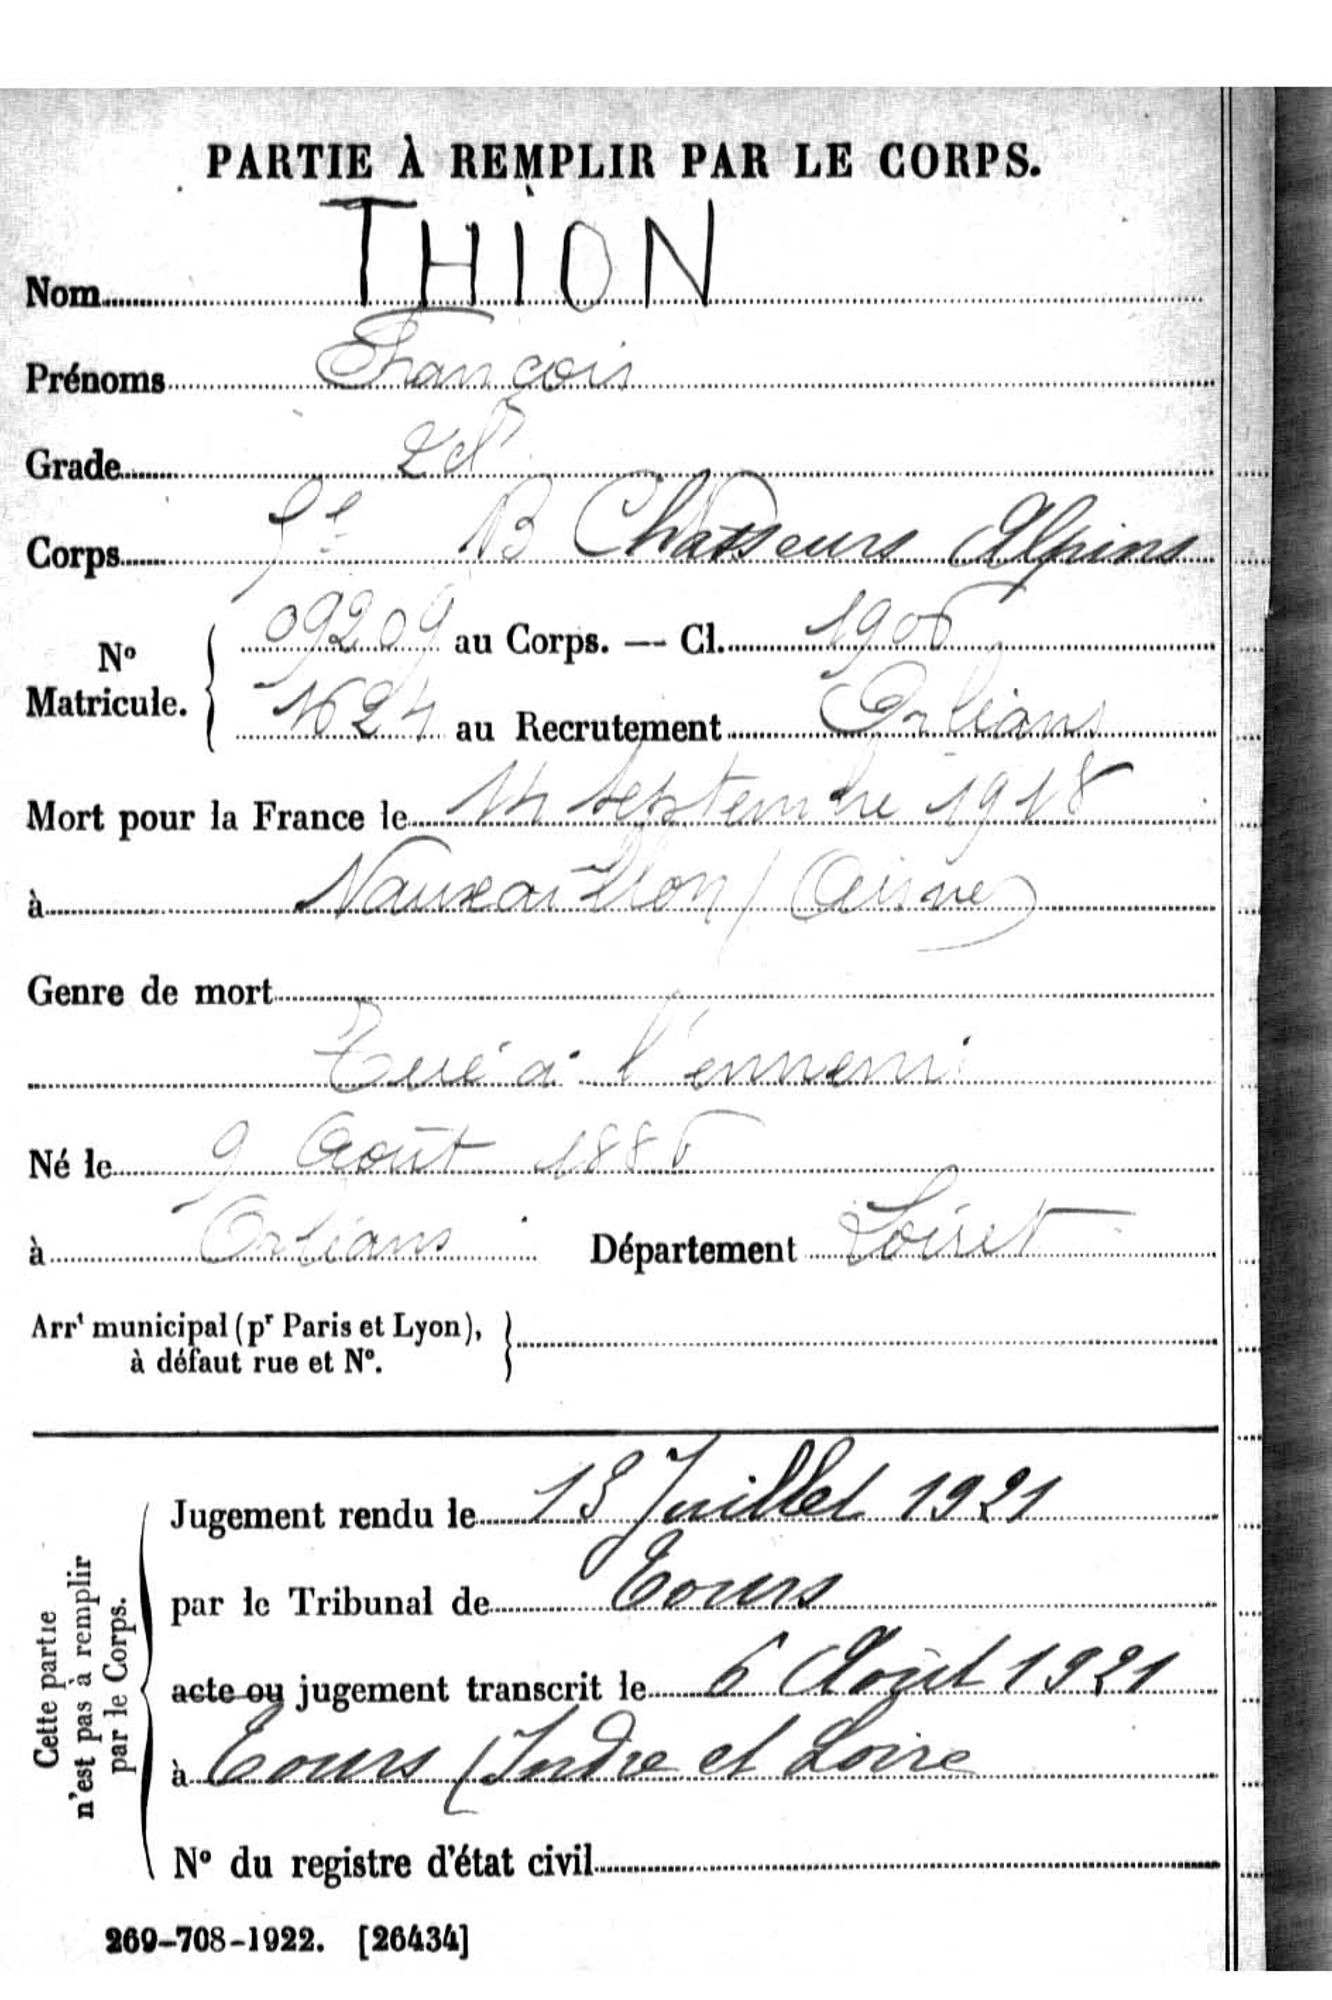 PARTIE À REMPLIR PAR LE CORPS.
Nom THION
Prénoms François
Grade
Corps B Chasseurs Alpins
N° Matricule. 09209 au Corps. — Cl. 1906
1624 au Recrutement Orléans
Mort pour la France le 14 Septembre 1918
à Vauxaillon (Aisne)
Genre de mort
Tué à l'ennemi
Né le 9 Août 1886
à Orléans Département Loiret
Arrt municipal (pr Paris et Lyon),
à défaut rue et N°.
Cette partie
n'est pas à remplir
par le Corps.
Jugement rendu le Juillet 1921
par le Tribunal de Tours
acte ou jugement transcrit le 6 Août 1921
à Tours (Indre et Loire
N° du registre d'état civil
269-708-1922. [26434]